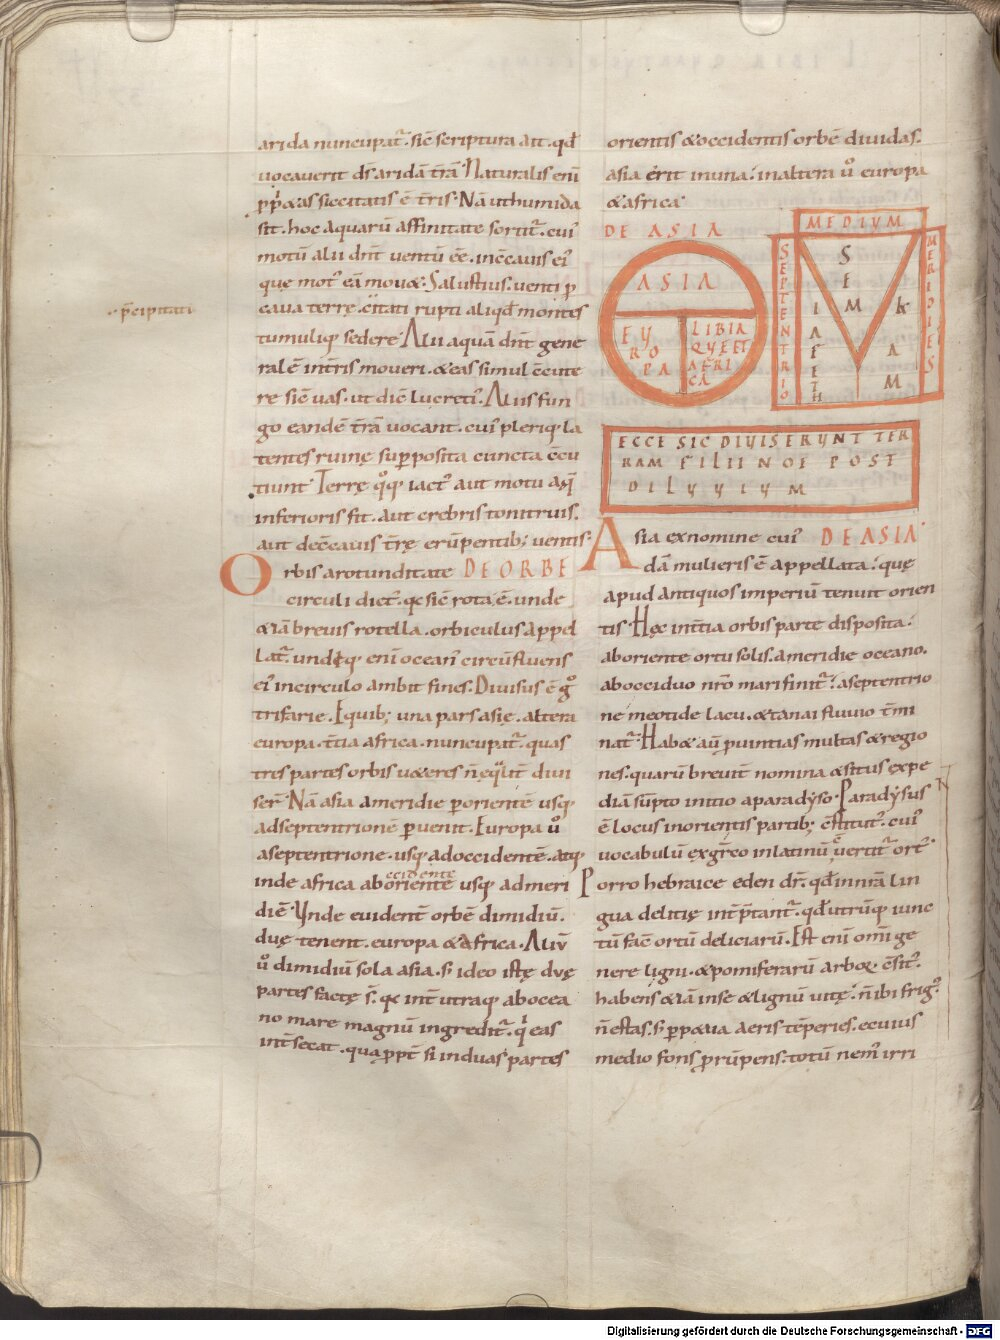 arida nuncupat᷑. sic̄ scriptura ait. qđ
uocauerit ds̄ aridā t̄rā. Naturalis enī
sit. hoc aquarū affinitate sortit᷑. cui᷒
motū alii dn̄t uentū ēē. inc̄cauis ei᷒
que mot᷒ eā mouet. Salustius. uenti p
caua terrę. citati rupti aliqđ montes
p̄cipitati
tumuliq; sedere. Alii aquā dn̄t gene
ralē int̄ris moueri. & eas simul c̄cute
re sic̄ uas. ut dic̄ lucreti᷒. Aliis fun
go eandē t̄rā uocant. cui᷒ pleriq; la
tentes ruinę suꝑposita cuncta c̄cu
tiunt. Terrę q̊q; iact᷒ aut motu aq̄
inferioris fit. aut crebris tonitruis.
aut dec̄cauis t̄rę erūpentib; uentis.
Orbis a rotunditate DE ORBE
circuli dict᷒. qc̄ sic̄ rota ē. unde
& iā breuis rotella. orbiculus appel
lat᷑. undiq; enī ocean᷒ circūfluens
ei᷒ in circulo ambit fines. Diuisus ē g̊
trifarie. E quib; una pars asię. altera
europa. t̄tia africa. nuncupat᷑. quas
tres partes orbis ueteres n̄ eq̄lit̄ diui
ser̄. Nā asia a meridie ꝑ orientē usq;
ad septentrionē ꝑuenit. Europa ů
a septentrione. usq; ad occidentē. atq;
ccidente
inde africa ab oriente usq; ad meri
diē. Unde euident̄ orbē dimidiū.
duę tenent. europa & africa. Aliū
ů dimidiū sola asia. s; ideo istę duę
partes factę s̄. qc̄ int̄ utraq; ab ocea
no mare magnū ingredit᷑. q̄ eas
int̄secat. qua ꝓpt̄ si in duas partes
orientis & occidentis orbē diuidas.
asia erit in una. in altera ů europa
& africa.
DE ASIA
ASIA
EUROPA
LIBIA
QUE ET
AFRI
CA
MEDIUM
SEPTENTRIO
MERIDIES
SEM
IAFETH
KAM
ECCE SIC DIUISERUNT TER
RAM FILII NOE POST
DILUUIUM
Asia ex nomine cui᷒ DE ASIA
dā mulieris ē appellata. quę
apud antiquos imperiū tenuit orien
tis. Hęc in t̄tia orbis parte disposita.
ab oriente ortu solis. a meridie oceano.
ab occiduo nr̄o mari finit᷑. a septentrio
ne meotide lacu. & tanai fluuio t̄mi
nat᷑. Habet aū ꝓuintias multas & regio
nes. quarū breuit̄ nomina & situs expe
diā sūpto initio a paradyso. Paradysus
ē locus in orientis partib; c̄stitut᷒. cui᷒
uocabulū ex gr̄eco in latinū uertit᷑ ort᷒.
Porro hebraice eden dr̄. qđ in nr̄a lin
gua delitię int̄p̄tant᷑. qđ utrūq; iunc
tū fac̄ ortū deliciarū. Est enī om̄i ge
nere ligni. & pomiferarū arboꝝ c̄sit᷒.
habens & iā in se & lignū uitę. n̄ ibi frig᷒.
n̄ estas. s; ꝑpetua aeris tēperies. e cuius
medio fons ꝓrūpens. totū nem᷒ irri
Digitalisierung gefördert durch die Deutsche Forschungsgemeinschaft - DFG